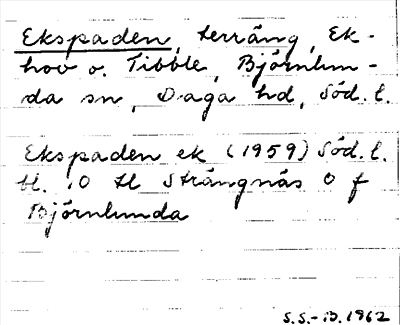 Ekspaden, terräng, Ek-
hov o. Tibble, Björnlun-
da sn, Daga hd, Söd. l.
Ekspaden ek (1959) Söd. l.
bl. 10 tl Strängnäs O f
Björnlunda
S.S.-B. 1962